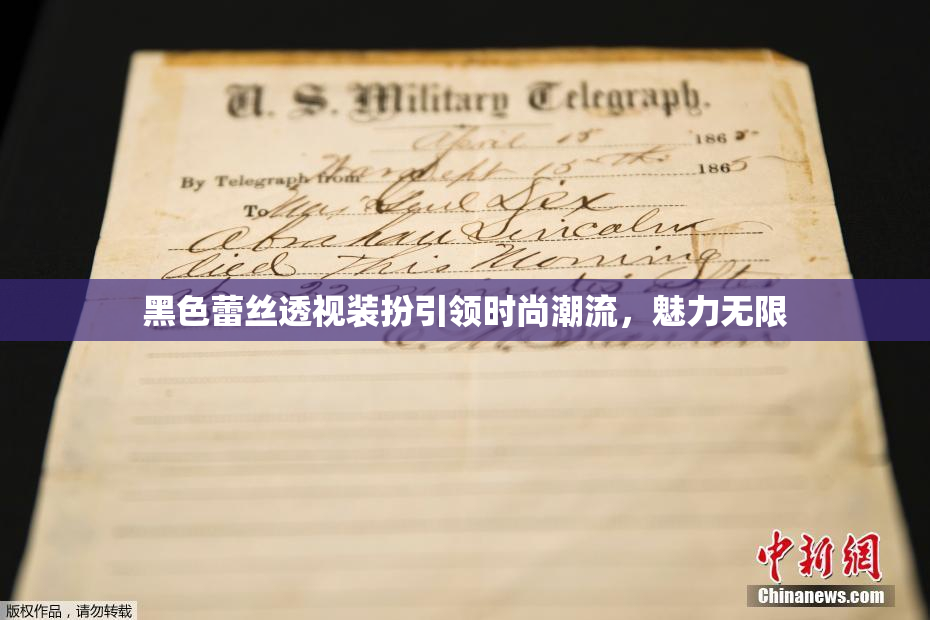 U. S. Military Telegraph.
April 15 1865
By Telegraph from War Dept 15th 1865
To Maj Genl Dix
Abraham Lincoln
died This Morning
at 22 minutes after
黑色蕾丝透视装扮引领时尚潮流，魅力无限
E. M. Stanton
中新網
Chinanews.com
版权作品，请勿转载